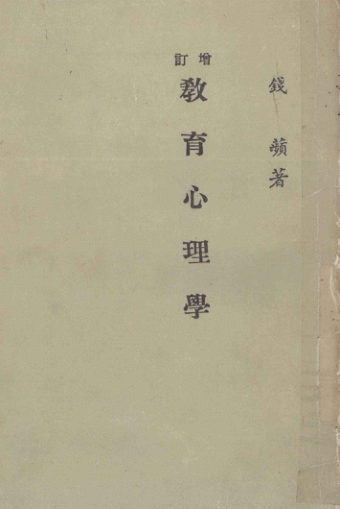 錢蘋著
增訂
教育心理學